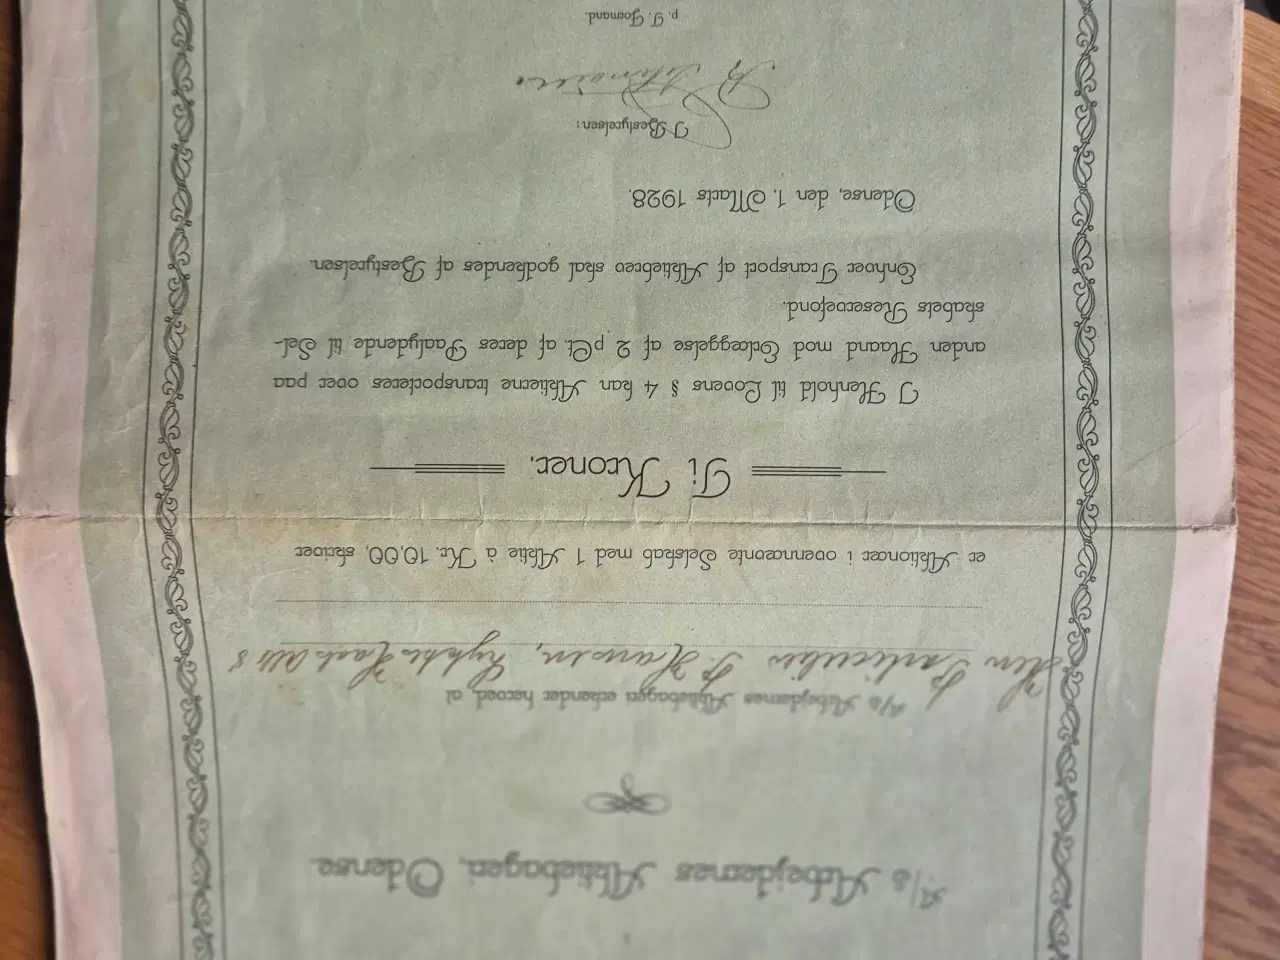 A/S Arbejdernes Aktiebageri, Odense.
A/S Arbejdernes Aktiebageri erkender herved, at
Herr Partikulier P. Hansen, Lykkes Haabs Allé 8
er Aktionær i ovennævnte Selskab med 1 Aktie à Kr. 10,00, skriver
Ti Kroner.
I Henhold til Lovens § 4 kan Aktierne transporteres over paa
anden Haand mod Erlæggelse af 2 pCt. af deres Paalydende til Sel-
skabets Reservefond.
Enhver Transport af Aktiebrev skal godkendes af Bestyrelsen.
Odense, den 1. Marts 1928.
I Bestyrelsen:
p. T. Formand.